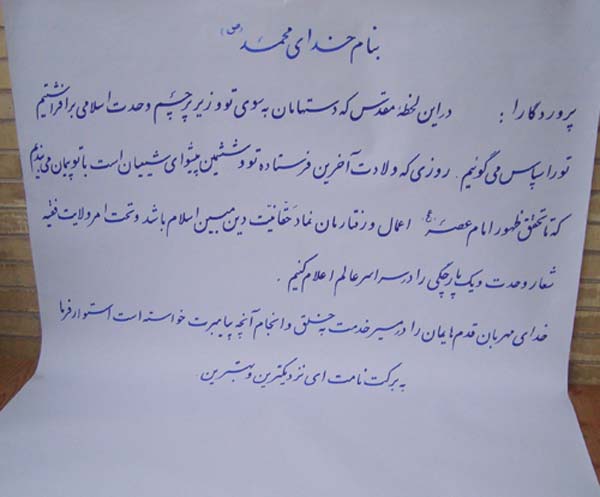 بنام خدای محمد (ص)
پروردگارا : در این لحظهٔ مقدس که دستهامان به سوی تو و زیر پرچم وحدت اسلامی برافراشتیم
تو را سپاس می گوئیم . روزی که ولادت آخرین فرستاده تو و ششمین پیشوای شیعیان است با تو پیمان می بندیم
که تا تحقق ظهور امام عصر (ع) اعمال و رفتارمان نماد حقانیت دین مبین اسلام باشد و تحت امر ولایت فقیه
شعار وحدت و یک پارچگی را در سراسر عالم اعلام کنیم .
خدای مهربان قدم هایمان را در مسیر خدمت به خلق و انجام آنچه پیامبرت خواسته است استوار فرما
به برکت نامت ای نزدیکترین و بهترین .